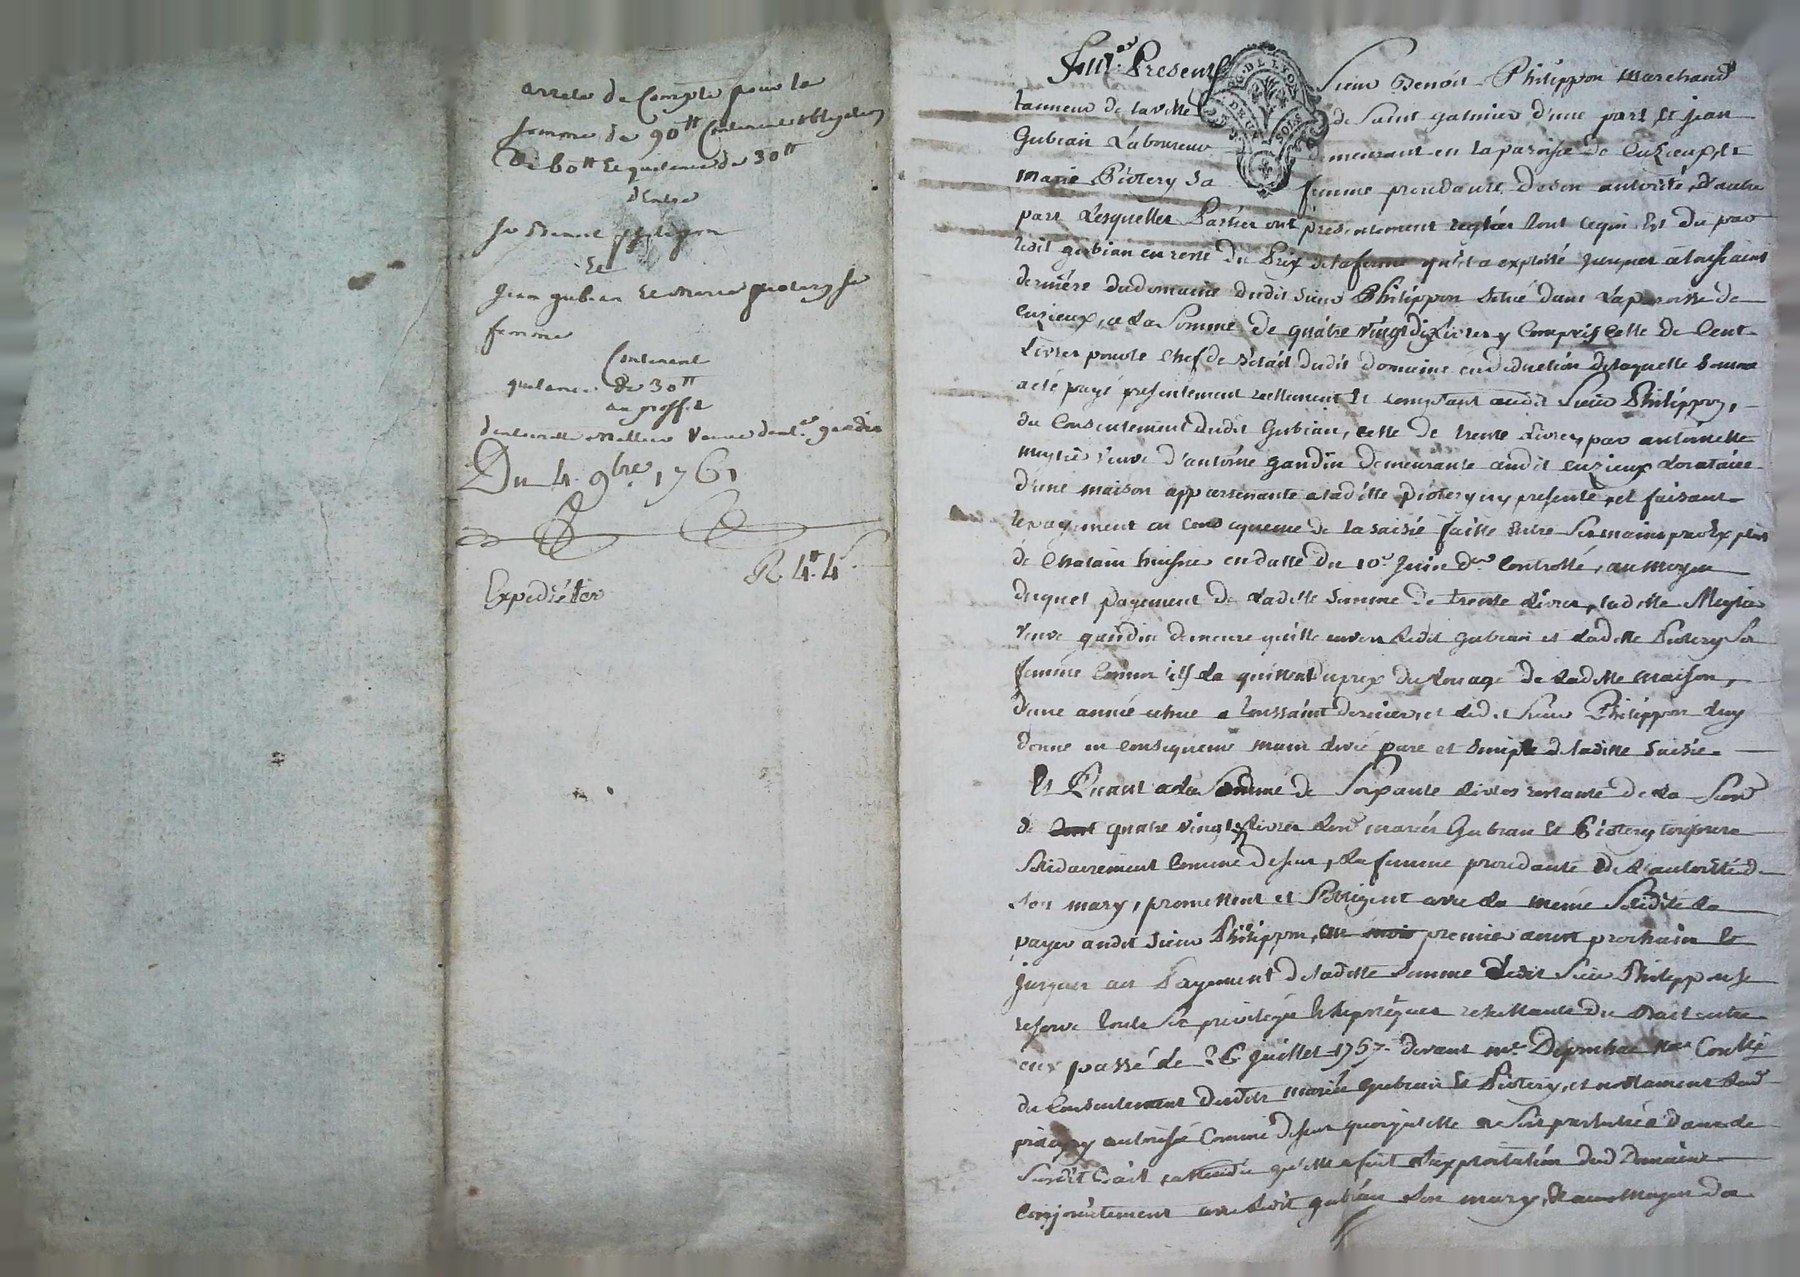 arresté de Compte pour la
somme de 90tt Contenant obligation
de 60tt Et quittance de 30tt
d'Entre
Sr Benoit philippon
Et
Jean gubian Et Marie piotery sa
femme
Contenant
quitance de 30tt
au proffit
d'antoinette veuve d'ant.e gandin
Du 4 9bre 1761
R. 4tt 4s
Expediéter
Fut Present Sieur Benoit Philippon Marchand
tanneur de la ville de Saint galmier d'une part et jean
Gubian Laboureur demeurant en la paroisse de Cuzieux, et
Marie Piotery sa femme procedante de son autorité d'autre
part Lesquelles Parties ont presentement reglée tout ce qui Est du par
ledit gubian en reste du Prix de la ferme qu'il a exploité jusques a toussaint
derniére du domaine dudit Sieur Philippon situé dans La paroisse de
Cuzieux, a la Somme de quatre vingt dix Livres y Compris Celle de Cent
Livres pour le Chef de Bétail dudit domaine en deduction de laquelle somme
a été payé presentement réellement Et comptant audit Sieur Philippon,
du Consentement dudit Gubian, celle de trente Livres par antoinette
veuve d'antoine Gandin demeurante audit Cuzieux Locataire
d'une maison appartenante a laditte Piotery icy presente, et faisant
le payement en consequence de la saisie faitte entre ses mains par exploit
de Chatain huissier en datte du 10e Juin der Controllé, au moyen
duquel payement de Laditte somme de trente Livres, laditte
veuve gandin demeure quitte envers Ledit gubian et Laditte Piotery sa
femme Comme ils la quittent du prix du Louage de Laditte maison,
d'une année échue a toussaint dernier, et Ledit Sieur Philippon luy
donne en consequence main Levée pure et simple de laditte saisie.
Et Quant a la Somme de Soixante Livres restante de La Som
de quatre vingt dix Livres Lesd mariés Gubian Et Piotery conjointe
solidairement Comme dessus, La femme procedante de L'autorité de
son mary, promettent et S'obligent avec La même Solidité La
payer audit Sieur Philippon, premier prochain Et
jusques au Payement de laditte somme Ledit Sieur Philippon se
reserve touts ses privilége Et hipotéques resultants du Bail entre
eux passé le 26 Juillet 1757 devant me
du Consentement desdits mariés Gubian Et Piotery, et notament Lad
piotery autorisée Comme dessus quoyqu'elle ne soit pas
Susdit Bail, attendu qu'elle a fait L'exploitation dud Domaine
conjointement avec Ledit gubian Son mary, Et au moyen de